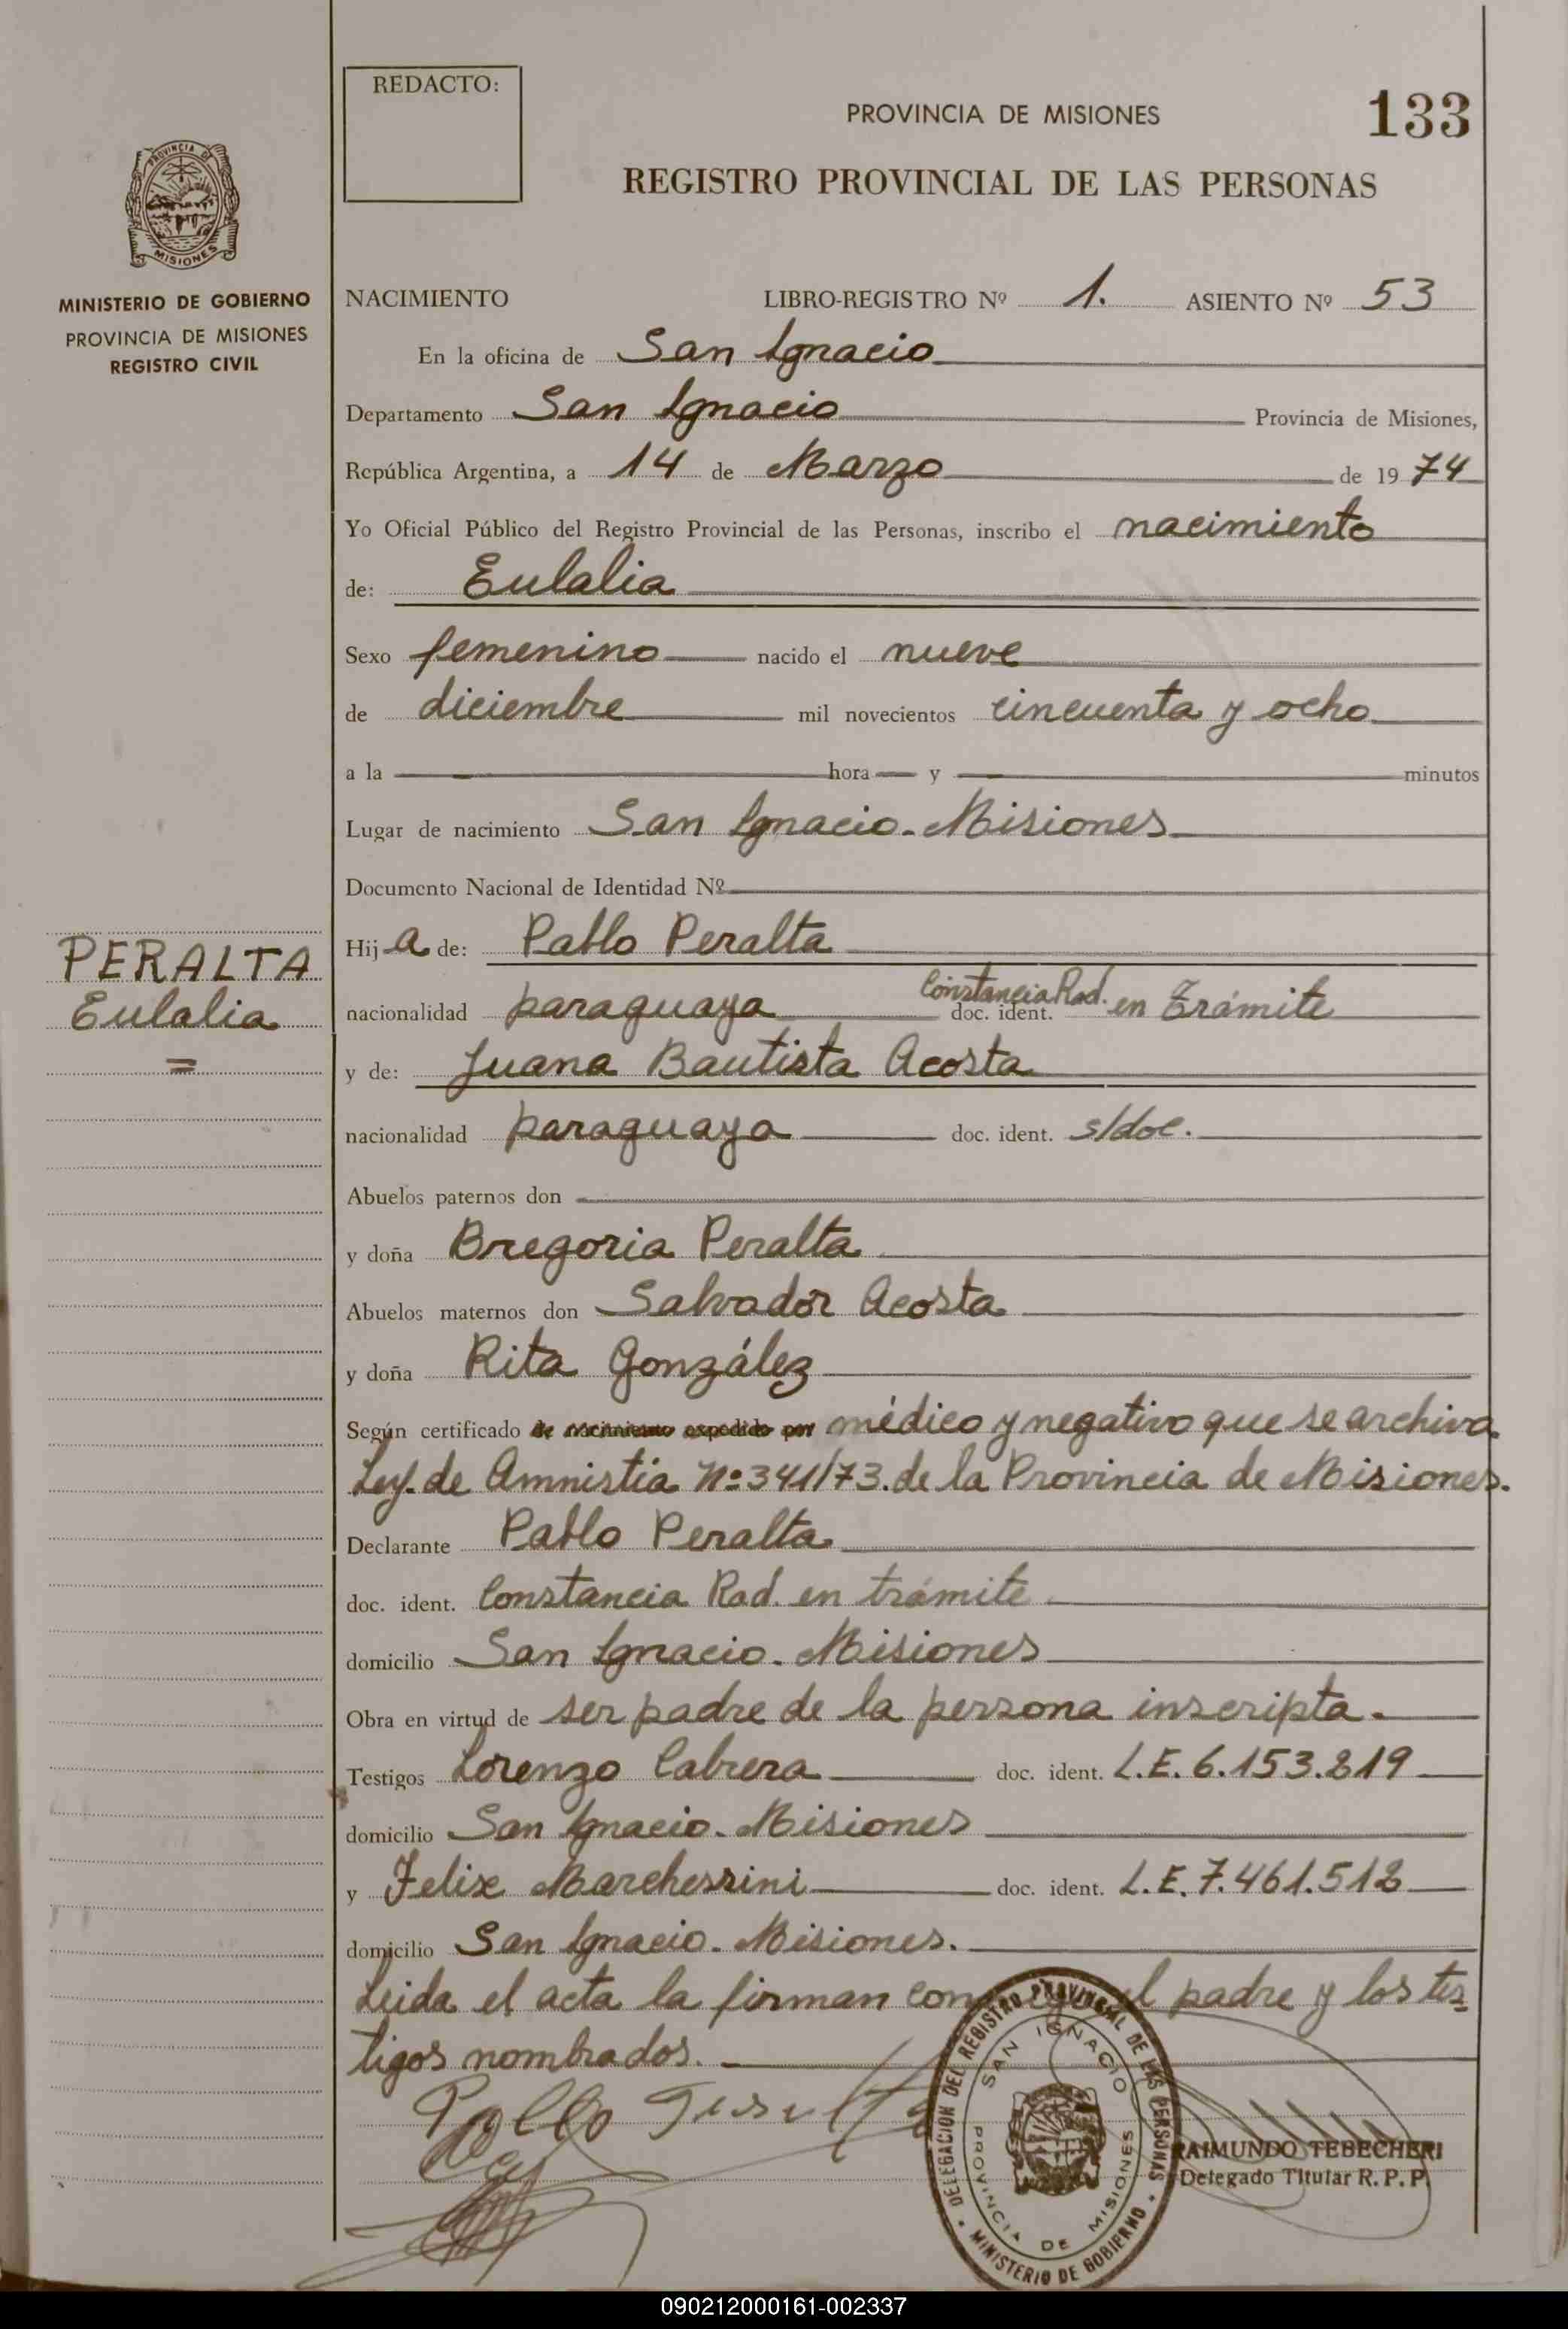 REDACTO:
PROVINCIA DE MISIONES
133
REGISTRO PROVINCIAL DE LAS PERSONAS
PROVINCIA DE
MISIONES
MINISTERIO DE GOBIERNO
PROVINCIA DE MISIONES
REGISTRO CIVIL
NACIMIENTO LIBRO-REGISTRO Nº 1. ASIENTO Nº 53
En la oficina de San Ignacio
Departamento San Ignacio Provincia de Misiones,
República Argentina, a 14 de Marzo de 1974
Yo Oficial Público del Registro Provincial de las Personas, inscribo el nacimiento
de: Eulalia
Sexo femenino nacido el nueve
de diciembre mil novecientos cincuenta y ocho
a la hora y minutos
Lugar de nacimiento San Ignacio. Misiones
Documento Nacional de Identidad Nº
PERALTA
Eulalia
=
Hija de: Pablo Peralta
nacionalidad paraguaya doc. ident. Constancia Rad. en trámite
y de: Juana Bautista Acosta
nacionalidad paraguaya doc. ident. s/doc.
Abuelos paternos don
y doña Gregoria Peralta
Abuelos maternos don Salvador Acosta
y doña Rita González
Según certificado de nacimiento expedido por médico y negativo que se archiva.
Ley de Amnistia Nº 341/73. de la Provincia de Misiones.
Declarante Pablo Peralta
doc. ident. Constancia Rad. en trámite
domicilio San Ignacio. Misiones
Obra en virtud de ser padre de la persona inscripta.
Testigos Lorenzo Cabrera doc. ident. L.E. 6.153.819
domicilio San Ignacio. Misiones
y Felix Marchessini doc. ident. L.E. 7.461.512
domicilio San Ignacio. Misiones.
Leida el acta la firman conmigo el padre y los tes
tigos nombrados.
DELEGACION DEL REGISTRO PROVINCIAL DE LAS PERSONAS
SAN IGNACIO
PROVINCIA DE MISIONES
MINISTERIO DE GOBIERNO
RAIMUNDO TEBECHERI
Delegado Titular R. P. P.
090212000161-002337